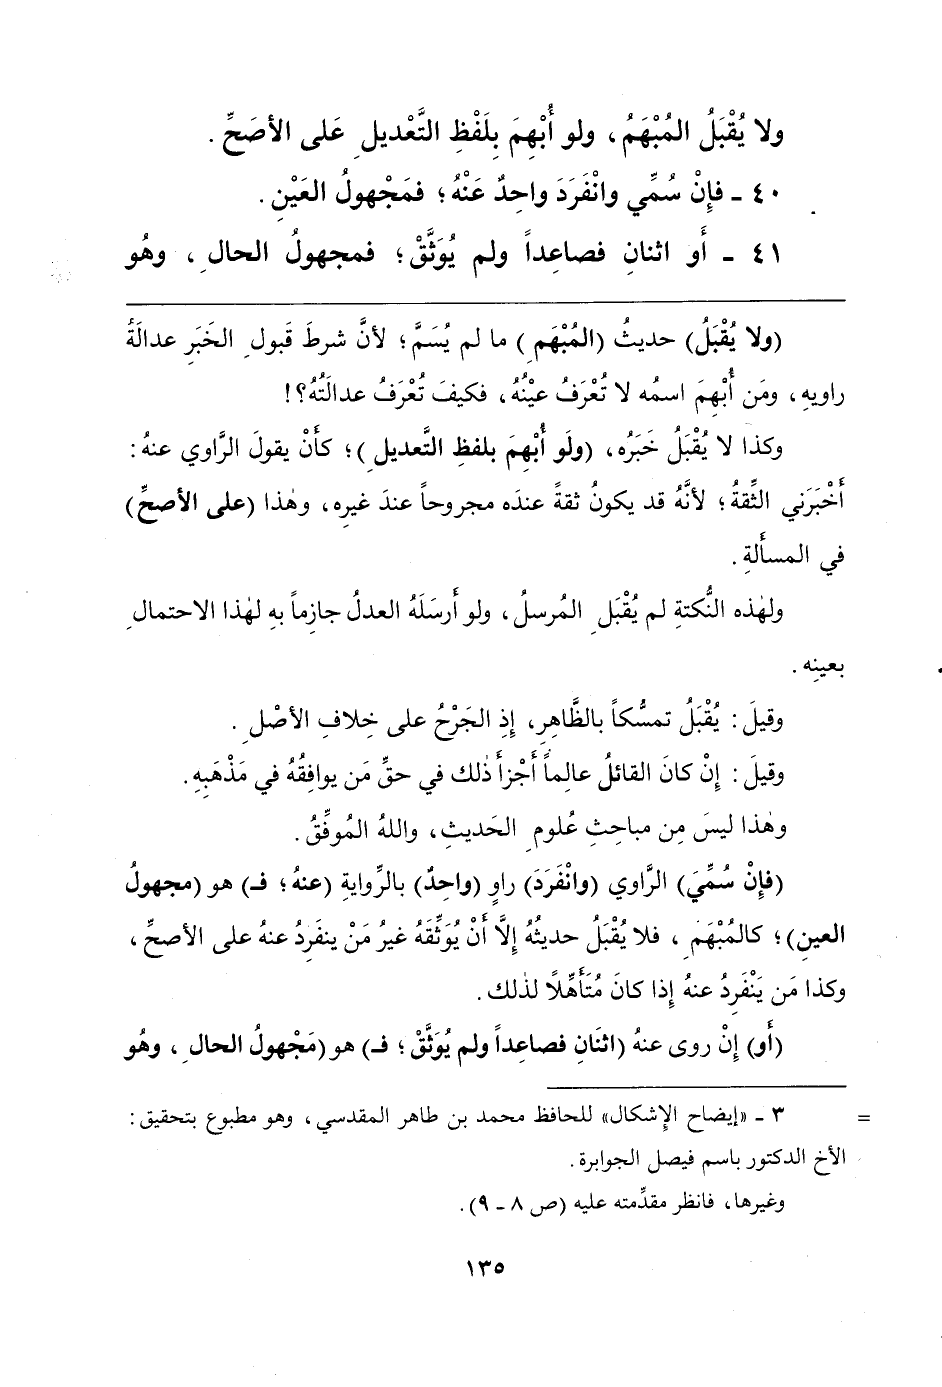 ولا يُقْبَلُ المُبْهَمُ، ولو أُبْهِمَ بِلَفْظِ التَّعْديلِ عَلى الأصَحِّ.
٤٠ - فإِنْ سُمِّي وانْفَرَدَ واحِدٌ عَنْهُ؛ فمَجْهولُ العَيْنِ.
٤١ - أَو اثنانِ فصاعِداً ولم يُوَثَّقْ؛ فمجهولُ الحالِ، وهُو
(ولا يُقْبَلُ) حديثُ (المُبْهَمِ) ما لم يُسَمَّ؛ لأنَّ شرطَ قَبولِ الخَبَرِ عدالَةُ
راويهِ، ومَن أُبْهِمَ اسمُه لا تُعْرَفُ عيْنُهُ، فكيفَ تُعْرَفُ عدالَتُهُ؟!
وكذا لا يُقْبَلُ خَبَرُه، (ولَو أُبْهِمَ بلفظِ التَّعديلِ)؛ كأَنْ يقولَ الرَّاوي عنهُ:
أَخْبَرَني الثِّقةُ؛ لأنَّهُ قد يكونُ ثقةً عندَه مجروحاً عندَ غيرِه، وهٰذا (على الأصحِّ)
في المسأَلةِ.
ولهٰذه النُّكتةِ لم يُقْبَلِ المُرسلُ، ولو أَرسَلَهُ العدلُ جازِماً بهِ لهٰذا الاحتمالِ
بعينِه.
وقيلَ: يُقْبَلُ تمسُّكاً بالظَّاهِرِ، إِذِ الجَرْحُ على خِلافِ الأصْلِ.
وقيلَ: إِنْ كانَ القائلُ عالِماً أَجْزأَ ذٰلك في حقِّ مَن يوافِقُهُ في مَذْهَبِهِ.
وهٰذا ليسَ مِن مباحِثِ عُلومِ الحَديثِ، واللهُ المُوفِّقُ.
(فإِنْ سُمِّيَ) الرَّاوي (وانْفَرَدَ) راوٍ (واحِدٌ) بالرِّوايةِ (عنهُ؛ فـ) هو (مجهولُ
العينِ)؛ كالمُبْهَمِ، فلا يُقْبَلُ حديثُهُ إِلاَّ أَنْ يُوَثِّقَهُ غيرُ مَنْ ينفَرِدُ عنهُ على الأصحِّ،
وكذا مَن يَنْفَرِدُ عنهُ إِذا كانَ مُتَأَهِّلًا لذٰلك.
(أَو) إِنْ روى عنهُ (اثنَانِ فصاعِداً ولم يُوَثَّقْ؛ فـ) هو (مَجْهولُ الحالِ، وهُو
= ٣ - «إيضاح الإِشكال» للحافظ محمد بن طاهر المقدسي، وهو مطبوع بتحقيق:
الأخ الدكتور باسم فيصل الجوابرة.
وغيرها، فانظر مقدِّمته عليه (ص ٨ - ٩).
١٣٥